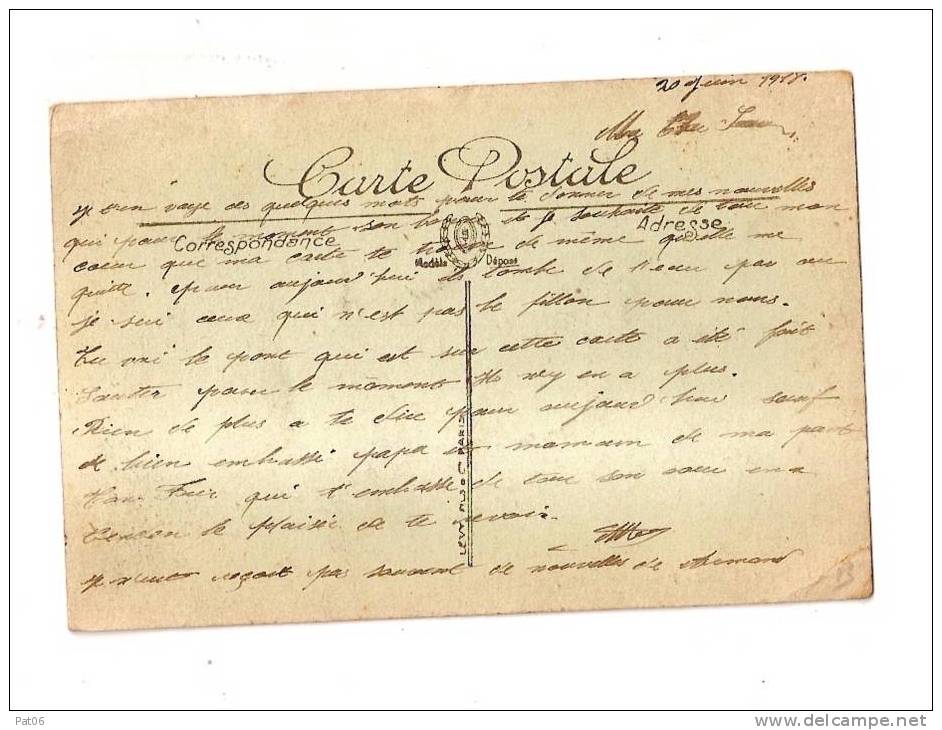 20 Juin 1918.
Ma Chère
Carte Postale
Je t'en voye ces quelques mots pour te donner de mes nouvelles
qui pour le moment son et je souhaite de tout mon
Correspondance
Adresse
coeur que ma carte te trouve de même quelle me
Modèle Déposé
quitte. pour aujourd'hui il tombe de l'eau
je sui ceux qui n'est pas le fillon pour nous.
Tu voi le pont qui est sur cette carte a été fait
sauter pour le moment il n'y en a plus.
Rien de plus a te dire pour aujourd'hui sauf
de bien embrassé papa et maman de ma part
Ton Frère qui t'embrasse de tout son coeur en a
le plaisir de te revoir.
LEVY FILS & Cie PARIS
reçoit pas souvent de nouvelles de Armand
Pat06
www.delcampe.net